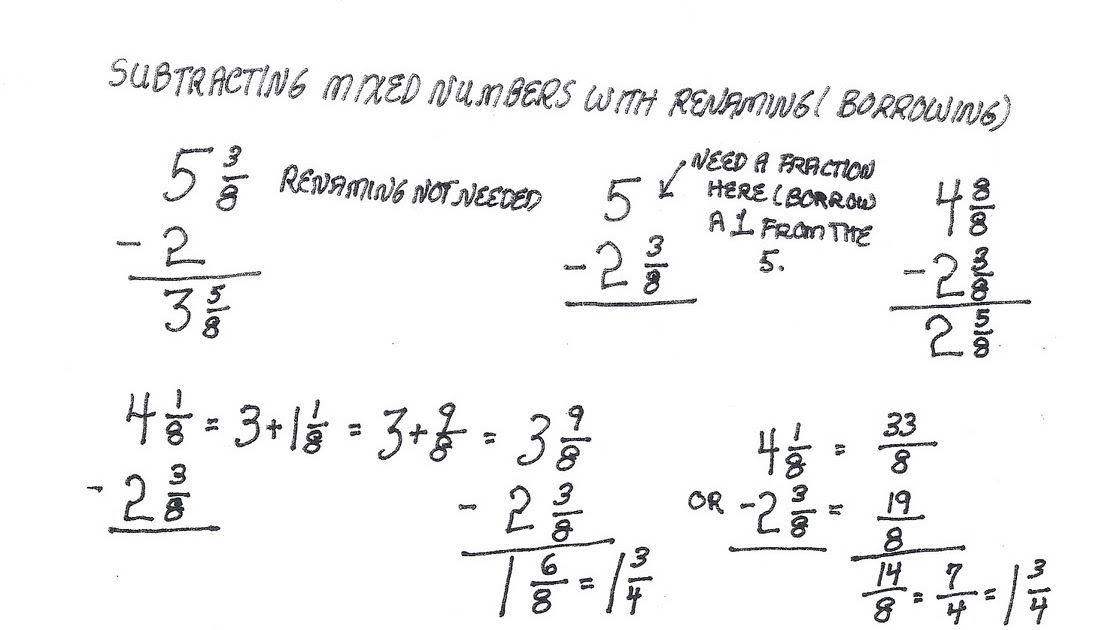 SUBTRACTING MIXED NUMBERS WITH RENAMING (BORROWING)
5 3/8 RENAMING NOT NEEDED
- 2
3 5/8
5
- 2 3/8
NEED A FRACTION
HERE (BORROW
A 1 FROM THE
5.
4 8/8
- 2 3/8
2 5/8
4 1/8 = 3 + 1 1/8 = 3 + 9/8 = 3 9/8
- 2 3/8
- 2 3/8
1 6/8 = 1 3/4
4 1/8 = 33/8
OR - 2 3/8 = 19/8
14/8 = 7/4 = 1 3/4